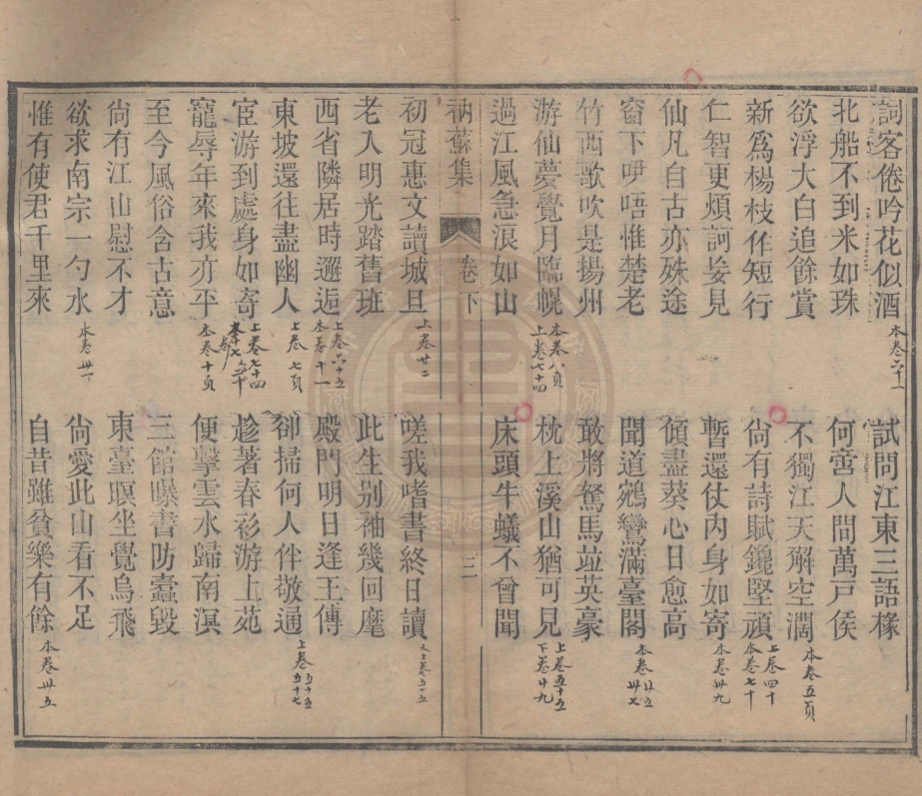 詞客倦吟花似酒　本卷二十一　試問江東三語掾
北船不到米如珠　何啻人間萬戸侯
欲浮大白追餘賞　不獨江天解空濶　本卷五頁
新爲楊枝作短行　尚有詩賦鑱堅頑　上卷四十　本卷七十
仁智更煩訶妄見　暫還仗内身如寄　本卷卅九
仙凡自古亦殊途　傾盡葵心日愈高
窗下呻唔惟楚老　聞道鵷鸞滿臺閣　本卷廿五　卅七
竹西歌吹是揚州　敢將駑馬竝英豪
游仙夢覺月臨幌　本卷八頁　上卷七十四　枕上溪山猶可見　上卷五十五　下卷廿九
過江風急浪如山　床頭牛蟻不曾聞
衲蘇集　卷下　三
初冠惠文讀城旦　上卷廿二　嗟我嗜書終日讀　上卷五十五
老入明光踏舊班　此生别袖幾回麾
西省隣居時邂逅　上卷六十五　本卷十一　殿門明日逢王傅
東坡還往盡幽人　上卷七頁　卻掃何人伴敬通　上卷五十五　五十七
宦游到處身如寄　上卷七十四　趁著春衫游上苑
寵辱年來我亦平　本卷十頁　便擊雲水歸南溟
至今風俗含古意　三館曝書防蠹毀
尚有江山慰不才　東臺暝坐覺烏飛
欲求南宗一勺水　本卷卅　尚愛此山看不足
惟有使君千里來　自昔雖貧樂有餘　本卷卅五